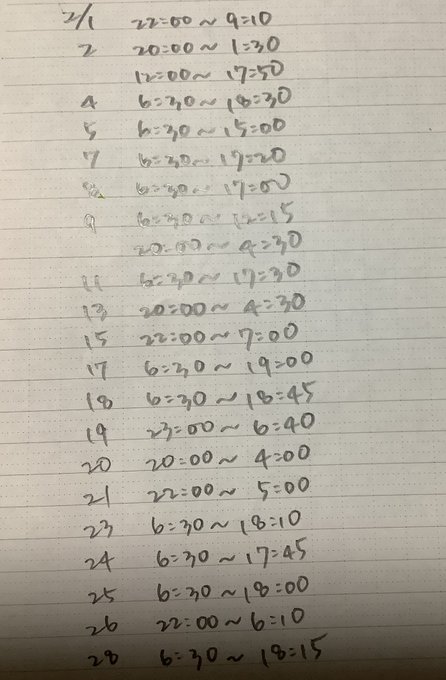 2/1 22:00~9:10
2 20:00~1:30
12:00~17:50
4 6:30~18:30
5 6:30~15:00
7 6:30~17:20
8 6:30~17:00
9 6:30~12:15
20:00~4:30
11 6:30~17:30
13 20:00~4:30
15 22:00~7:00
17 6:30~19:00
18 6:30~18:45
19 23:00~6:40
20 20:00~4:00
21 22:00~5:00
23 6:30~18:10
24 6:30~17:45
25 6:30~18:00
26 22:00~6:10
28 6:30~18:15